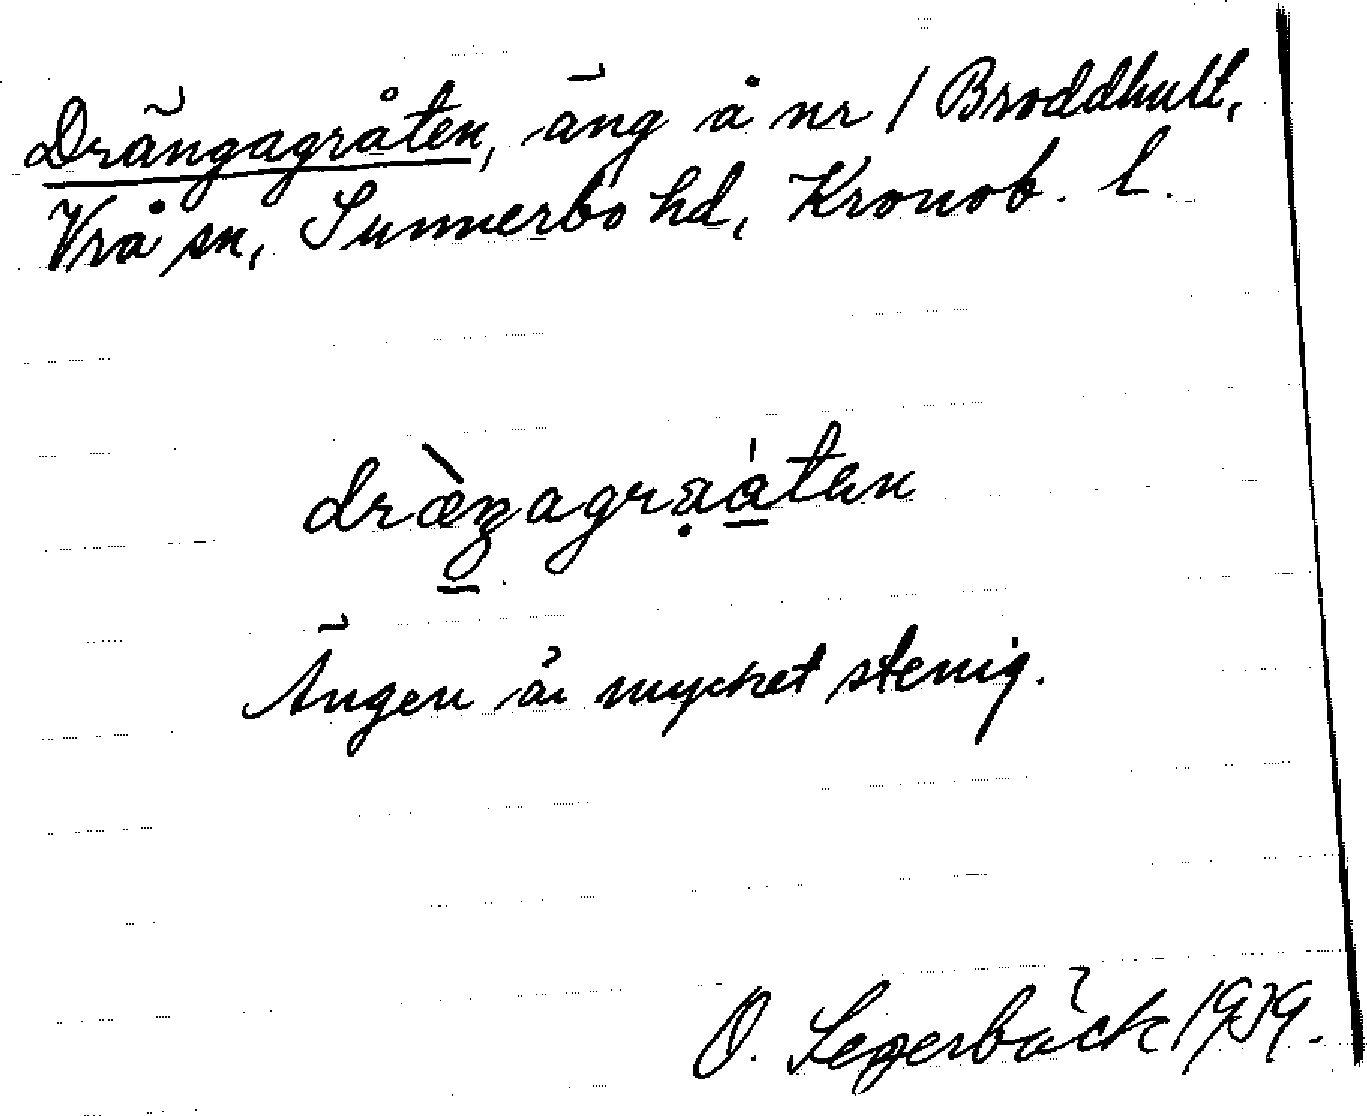 Drängagråten, äng å nr 1 Broddhult,
Vrå sn, Sunnerbo hd, Kronob. l.
Ängen är mycket stenig.
O. Segerbäck 1939.